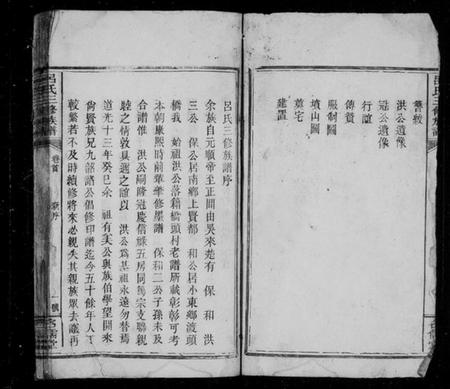 警敍
洪公遺像
冠公遺像
行誼
傳贊
服制圖
墳山圖
墓宅
建置
呂氏三修族譜
呂氏三修族譜序
余族自元順帝至正間由吳來楚有 保 和 洪
三公 保公居南鄉上賢都 和公居小東鄉渡頭
橋我 始祖洪公落籍橋頭村老譜所載彰彰可考
本朝康熙時前輩肇修墨譜 保和二公子孫未及
合譜惟 洪公嗣隆冠慶信縣五房同為宗支聯親
睦之情敦具邇之誼以 洪公為基祖永遠勿替焉
道光十三年癸巳余 祖有美公與族伯學望開來
尚賢族兄九韶諸公倡修印譜迄今五十餘年人丁
較繁若不及時續修將來必親失其親族眾去處再
呂氏三修族譜
卷首
新序
一